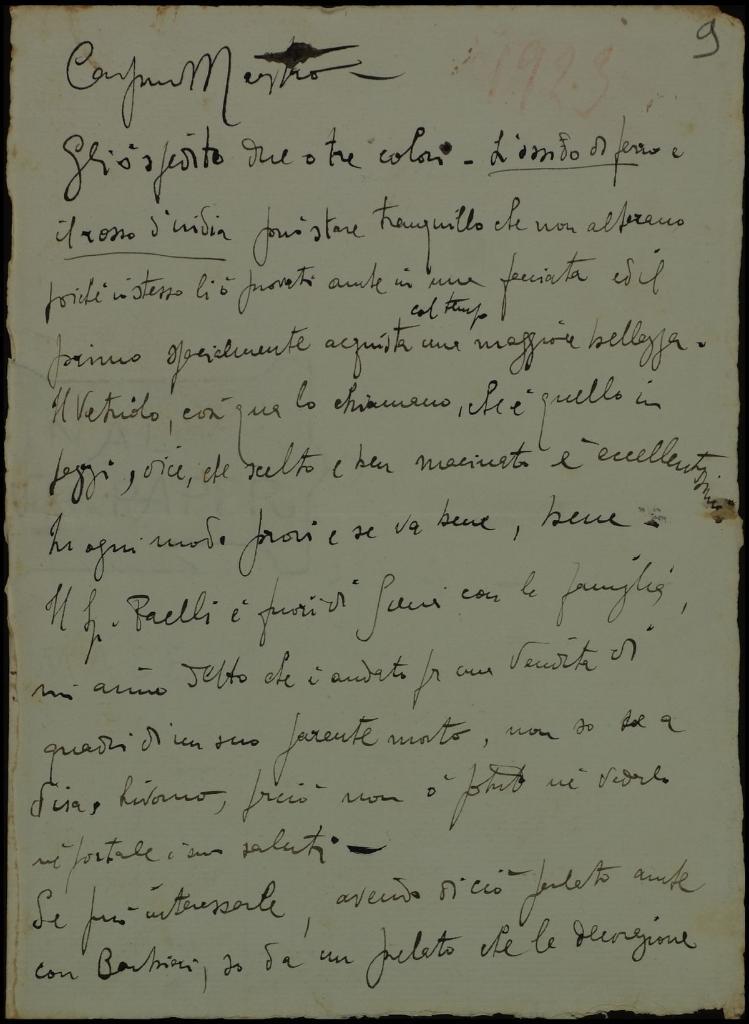 9
1923
Carissimo Maestro
Gli ò spedito due o tre colori - L'ossido di ferro e
il rosso d'india può stare tranquillo che non alterano
poichè io stesso li ò provati anche in una facciata ed il
col tempo
primo specialmente acquista una maggiore bellezza.
Il Vetriolo, così qua lo chiamano, che è quello in
pezzi, dice, che scelto e ben macinato è eccellentissimo
In ogni modo provi e se va bene, bene -
Il Sig. Baelli è fuori di Siena con la famiglia,
mi ànno detto che è andato per una vendita di
quadri di un suo parente morto, non so se a
Pisa, Livorno, perciò non ò potuto nè vederlo
nè portale i suoi saluti -
Se può interessarle, avendo di ciò parlato anche
con Barbieri, so da un prelato che la decorazione